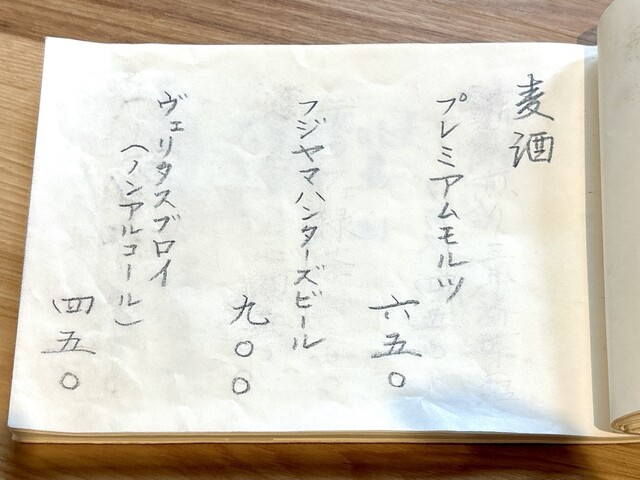 麦酒
プレミアムモルツ
六五〇
フジヤマハンターズビール
九〇〇
ヴェリタスブロイ
(ノンアルコール)
四五〇